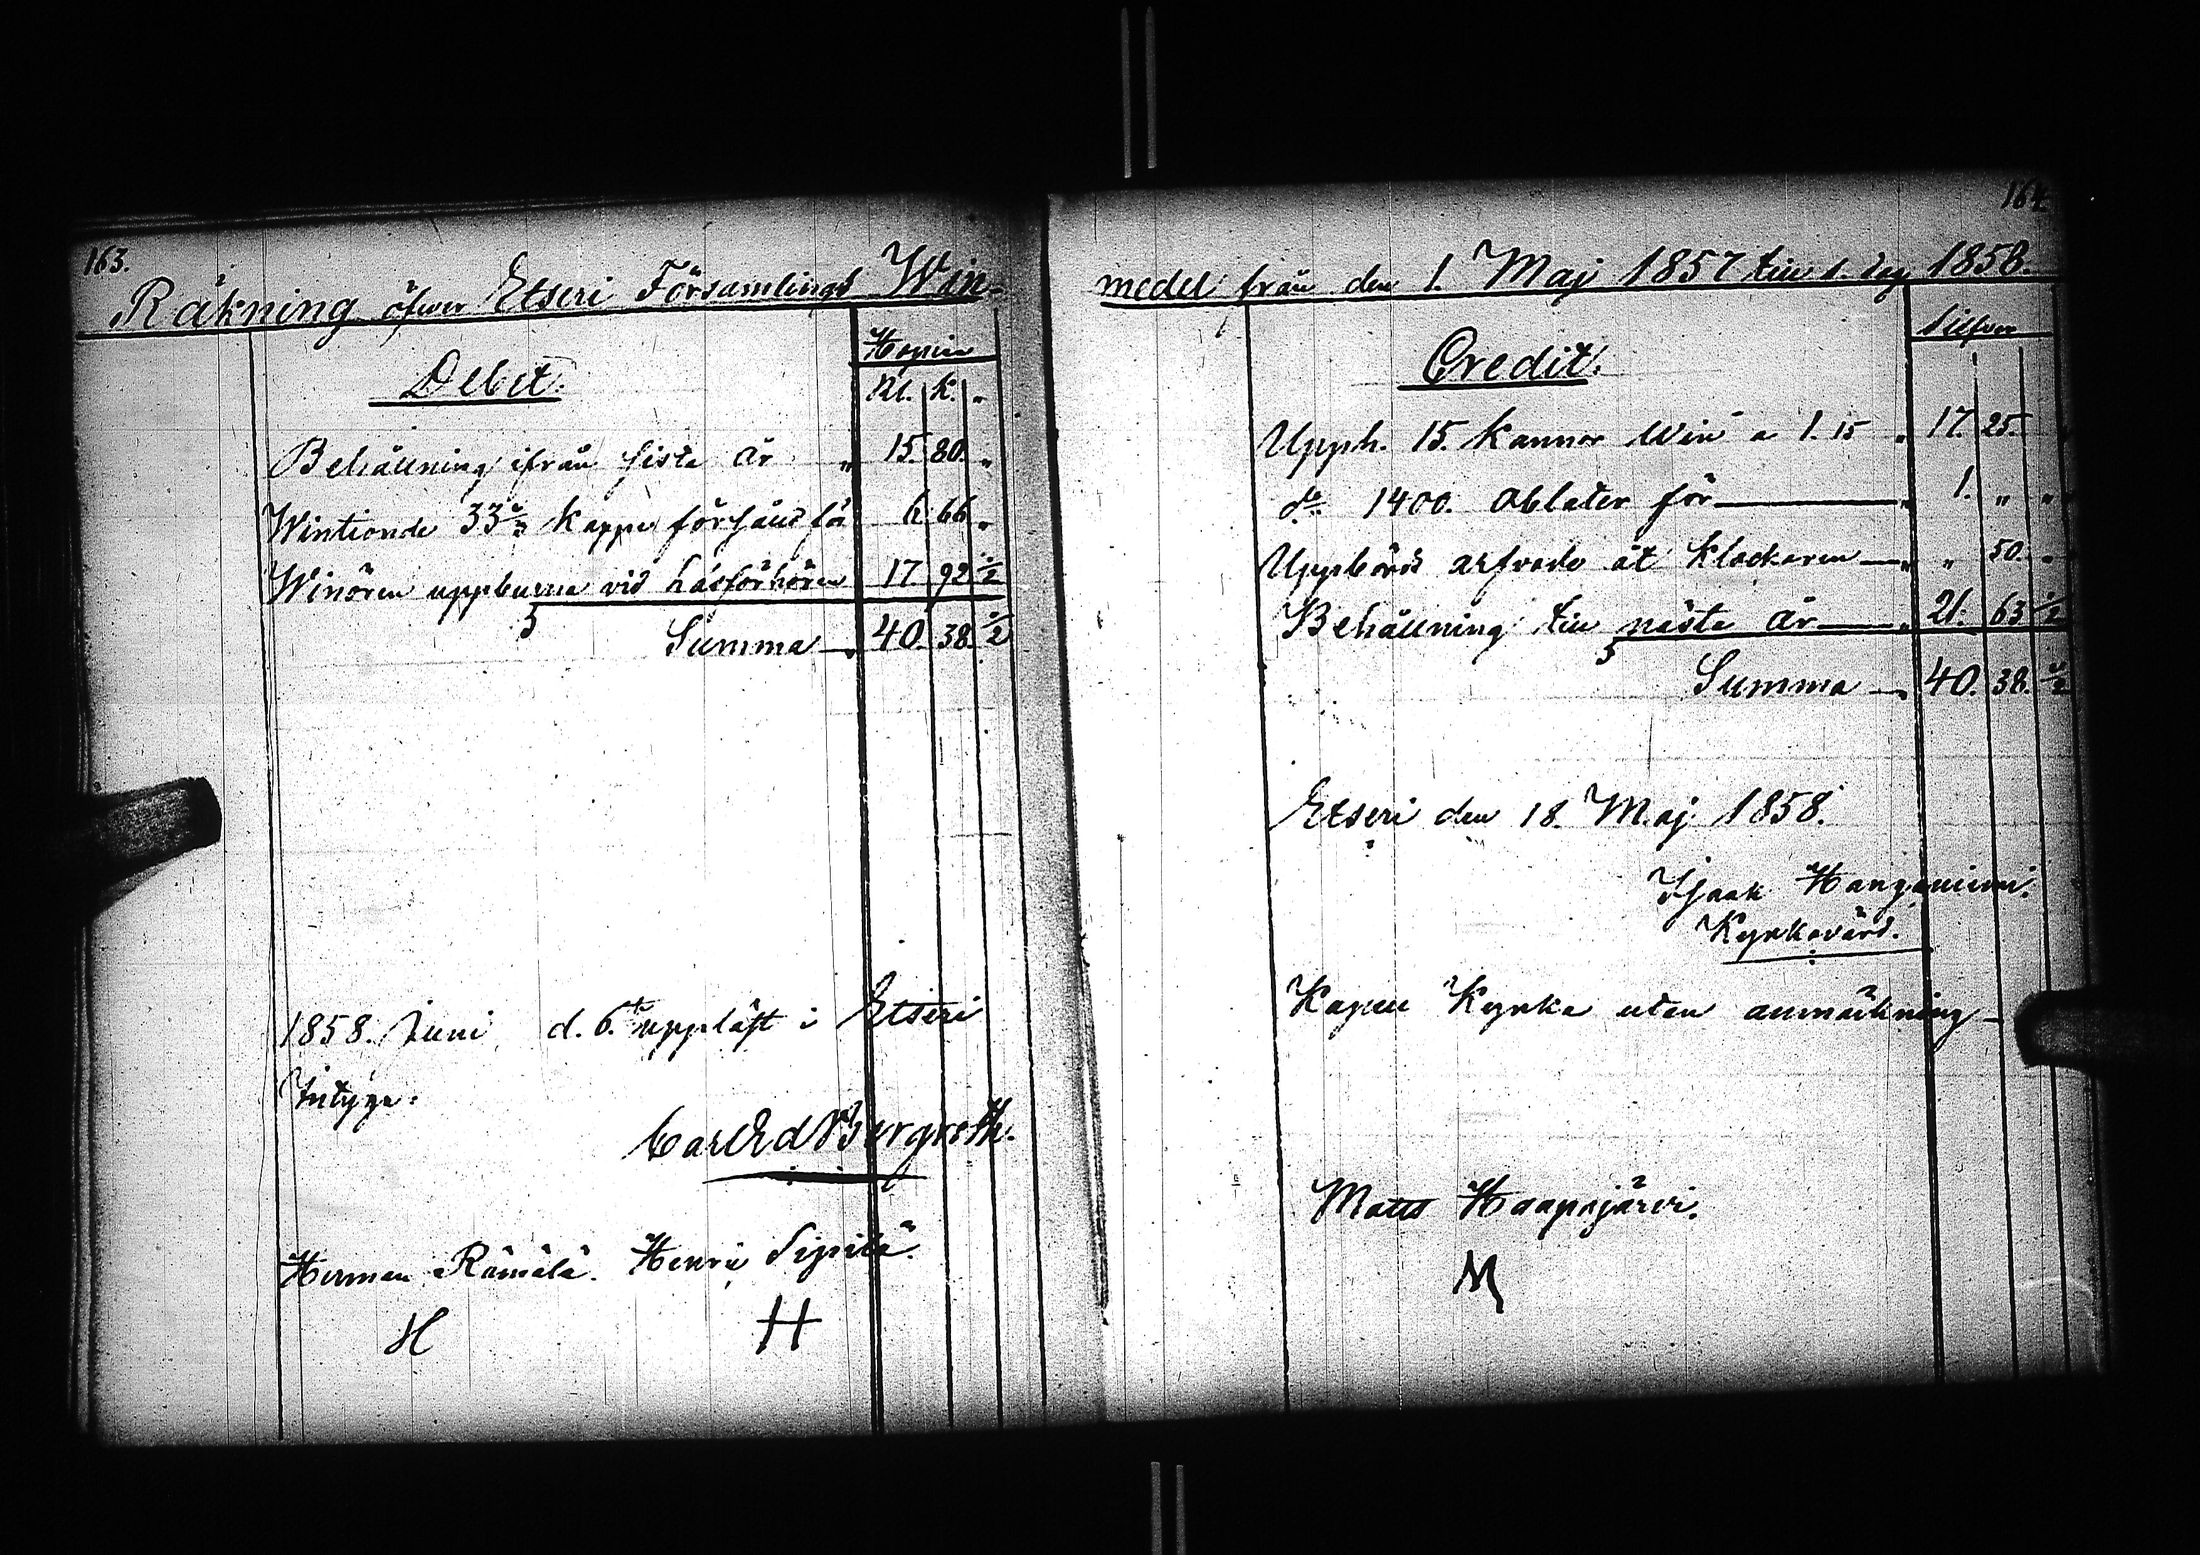 163.
Räkning öfwer Etseri Församlings Win-
Debet.
Kopier
Rl. k. "
Behållning ifrån sista år " 15. 80. "
Wintionde 33 1/3 Kappe förhåld för 6. 66 "
Winören uppburna vid Läsförhören 17. 92 1/2
Summa 40. 38. 1/2
1858. Juni d. 6. uppläst i Etseri
Intyga:
Carl Ed Bergroth.
Herman Rämälä. Henric Sipilä.
H H
164
medel från den 1. Maj 1857 till 1. dag 1858.
Silfver
Credit.
Upph. 15. Kannor Win a 1. 15 " 17. 25. "
d:o 1400. Oblater för " 1. " "
Uppbörds arfvode åt Klockaren " " 50. "
Behållning till nästa år " 21. 63 1/2
Summa 40. 38. 1/2
Etseri den 18. Maj 1858.
Isaak
Kyrkovärd.
Kyrka utan anmärkning
Matts Haapajärvi.
M